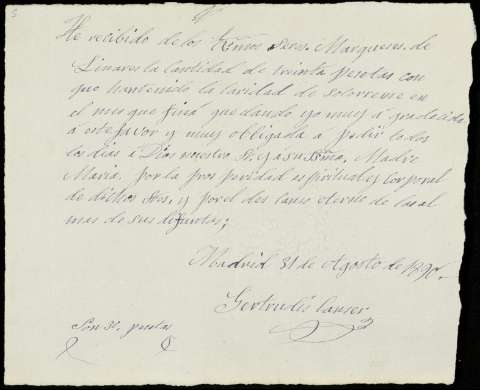 He recibido de los Exmos Sres. Marqueses. de
Linares la Cantidad de treinta pesetas con
que han tenido la caridad de socorrerme en
el mes que fina quedando yo muy á gradecida
á este favor y muy obligada a pedir todos
los dias á Dios nuestro Sr. y á su Sma, Madre
Maria. por la pros peridad espiritual y corporal
de dichos Sres. y por el des canso eterno de las al
mas de sus difuntos;
Madrid 31 de Agosto de
Gertrudis Canser
Son 30. pesetas